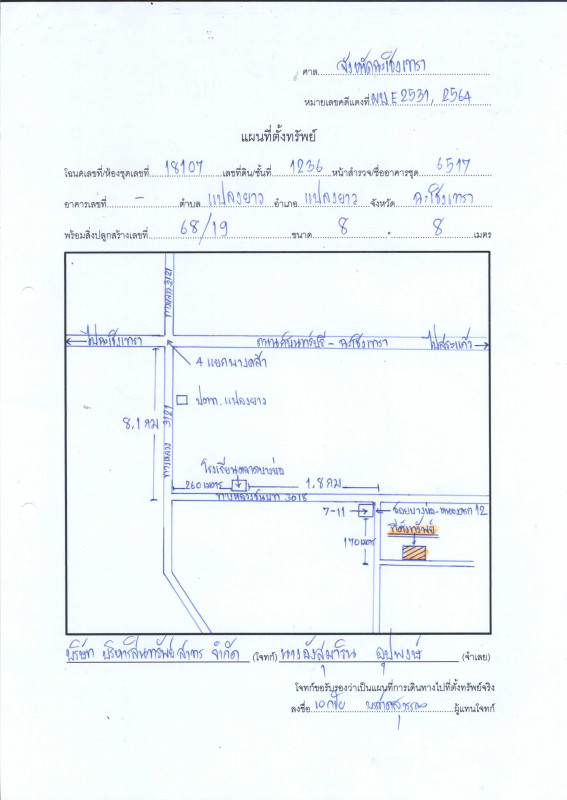 ศาล จังหวัดฉะเชิงเทรา
หมายเลขคดีแดงที่ ผบE 2531, 2564
แผนที่ตั้งทรัพย์
โฉนดเลขที่/ห้องชุดเลขที่ 18107 เลขที่ดิน/ชั้นที่ 1236 หน้าสำรวจ/ชื่ออาคารชุด 6517
อาคารเลขที่ - ตำบล แปลงยาว อำเภอ แปลงยาว จังหวัด ฉะเชิงเทรา
พร้อมสิ่งปลูกสร้างเลขที่ 68/19 ขนาด 8 * 8 เมตร
ทางหลวง 3121
ไปฉะเชิงเทรา
ถนนกบินทร์บุรี - ฉะเชิงเทรา
ไปสระแก้ว
4 แยกนางดสำ
ปตท. แปลงยาว
8.1 กม
ทางหลวง 3121
โรงเรียนตลาดบางบ่อ
260 เมตร
1.8 กม
ทางหลวงชนบท 3018
7-11
12
ที่ตั้งทรัพย์
170 เมตร
บริษัท บริหารสินทรัพย์ สาทร จำกัด (โจทก์) นาง อุปพงษ์ (จำเลย)
โจทก์ขอรับรองว่าเป็นแผนที่การเดินทางไปที่ตั้งทรัพย์จริง
ลงชื่อ เอกชัย ผู้แทนโจทก์